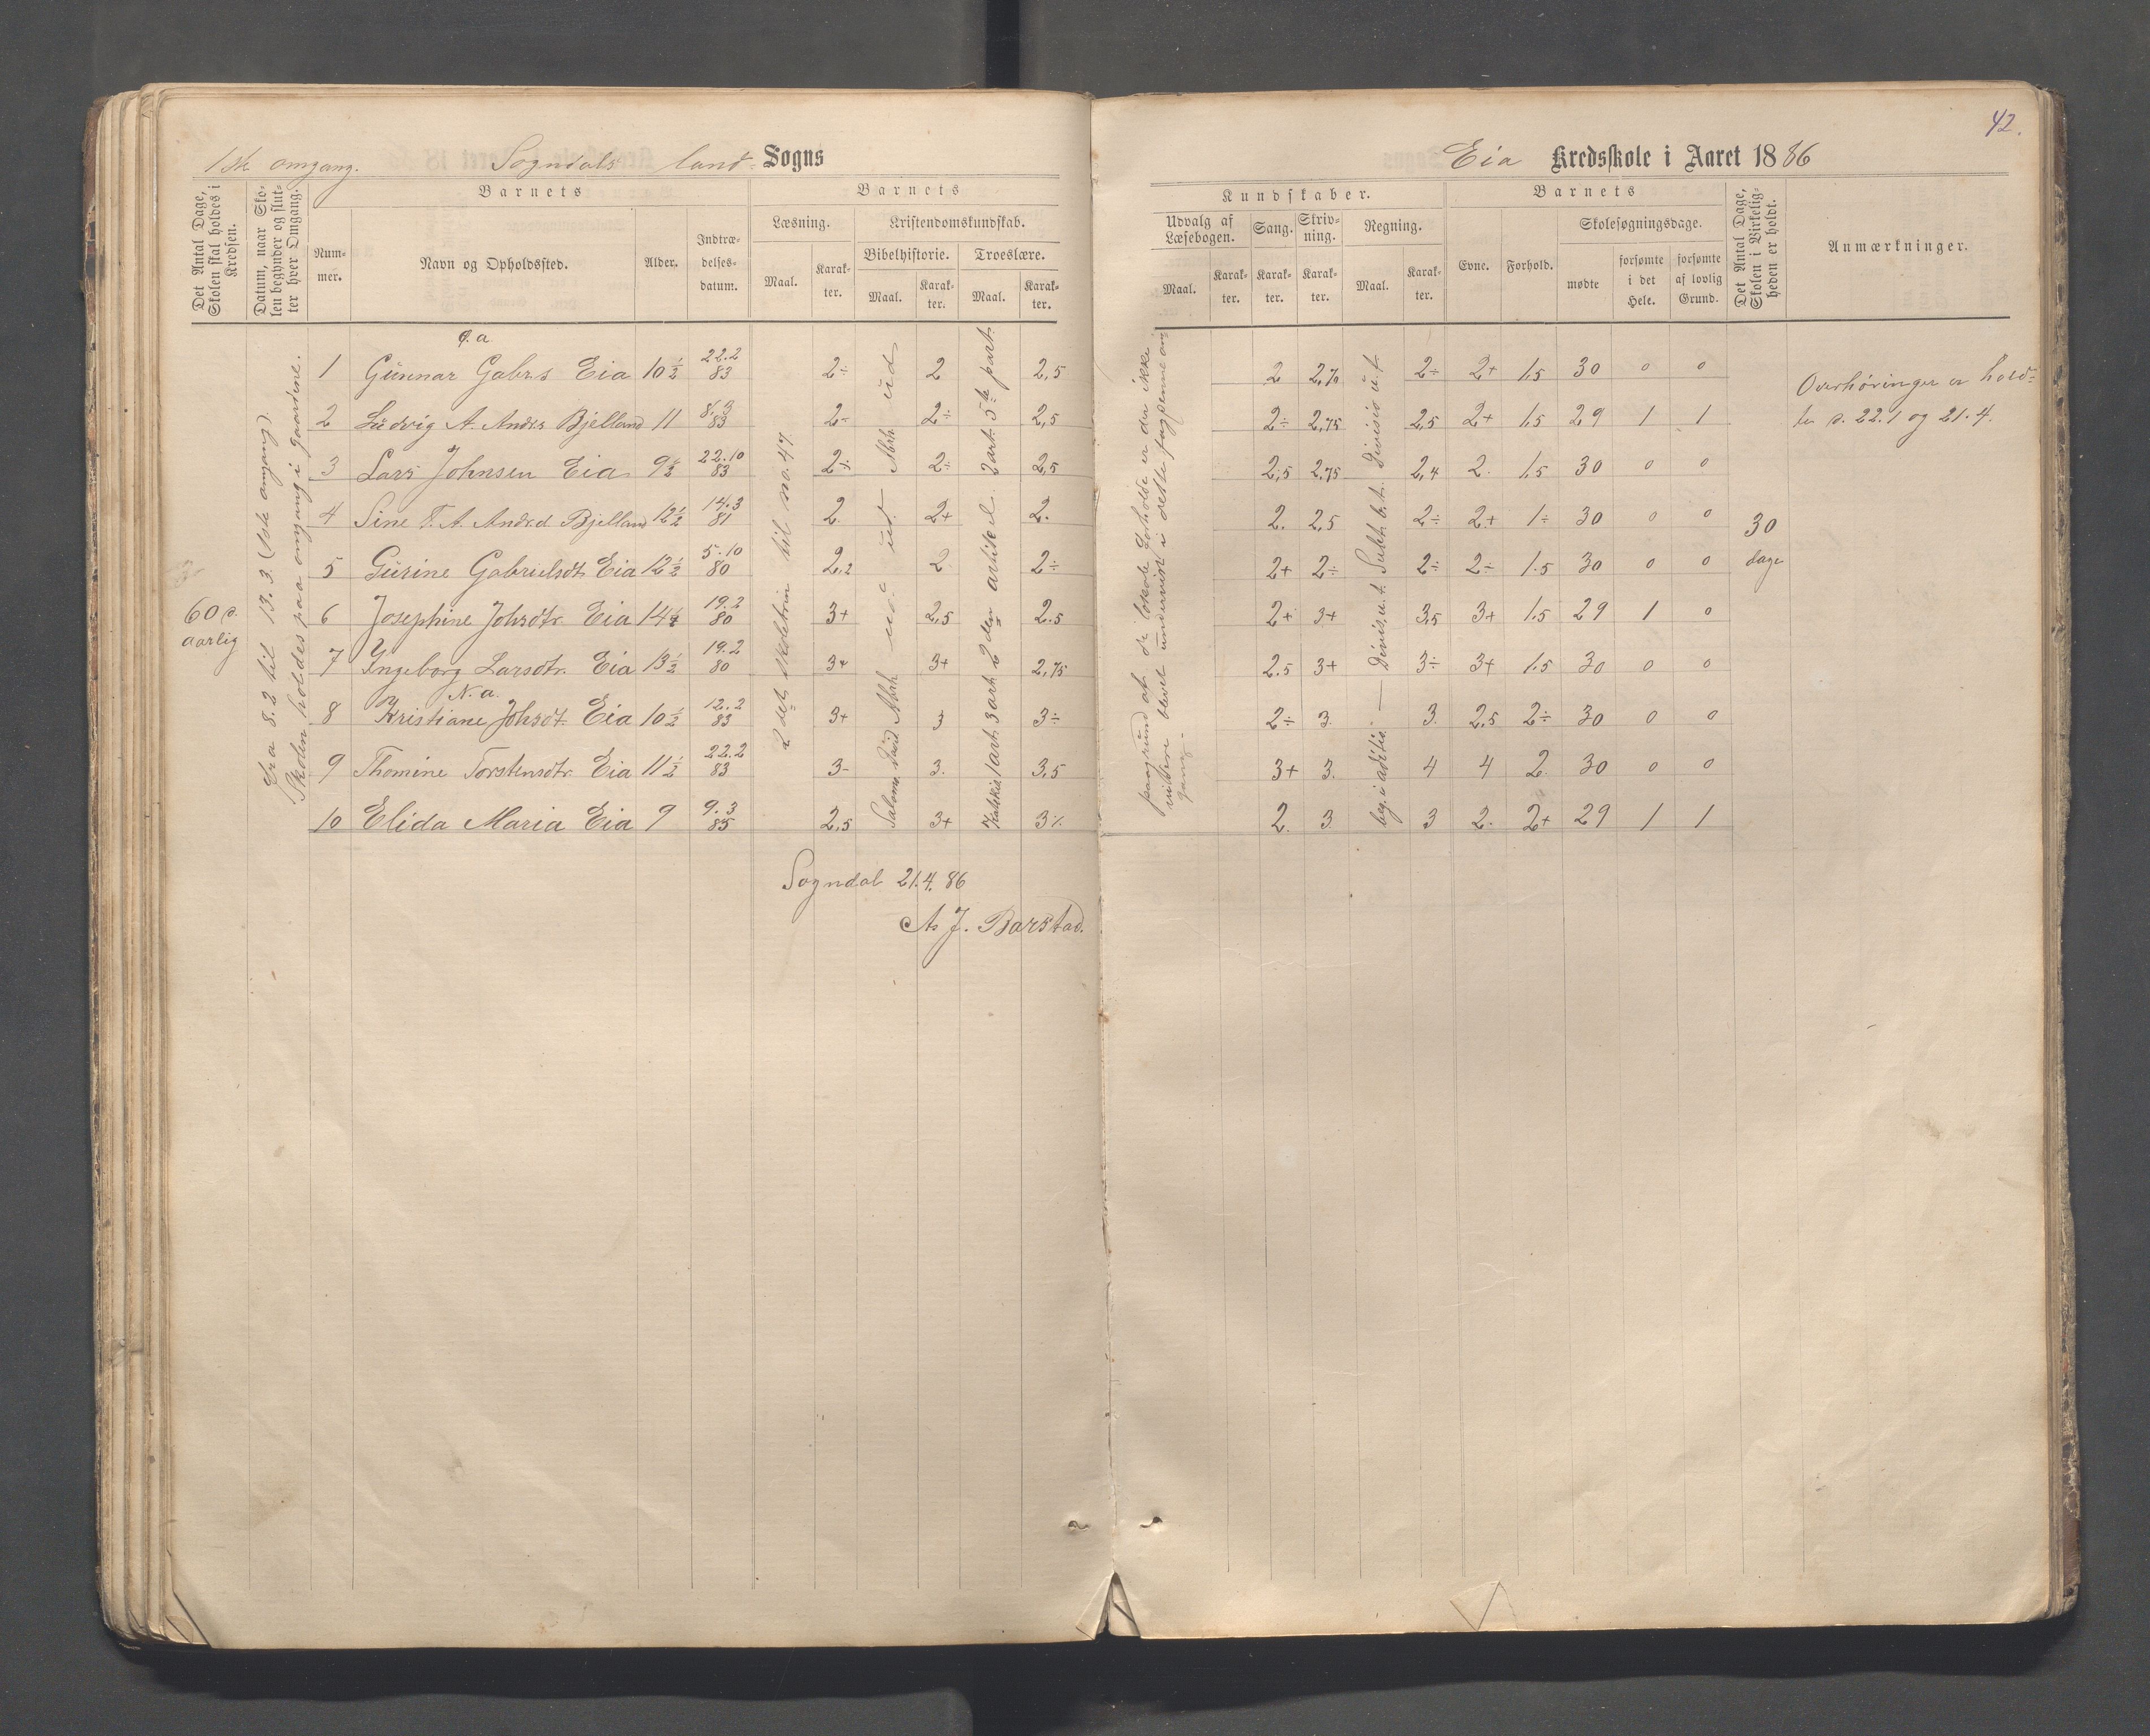 42.
1ste omgang. Sogndals land Sogns
Eia Kredsskole i Aaret 1886
Det Antal Dage, Skolen skal holdes i Kredsen.
Datum, naar Skolen begynder og slutter hver Omgang.
Barnets
Nummer.
Navn og Opholdssted.
Alder.
Indtrædelsesdatum.
Barnets
Læsning.
Maal.
Karakter.
Kristendomskundskab.
Bibelhistorie.
Maal.
Karakter.
Troeslære.
Maal.
Karakter.
Kundskaber.
Udvalg af Læsebogen.
Maal.
Karakter.
Sang.
Karakter.
Skrivning.
Karakter.
Regning.
Maal.
Karakter.
Barnets
Evne.
Forhold.
Skolesøgningsdage.
mødte
forsømte i det Hele.
forsømte af lovlig Grund.
Det Antal Dage, Skolen i Virkeligheden er holdt.
Anmærkninger.
60 d.
aarlig
Fra 8.2 til 13.3. (1ste omgang).
Skolen holdes paa omgang i gaardene.
1 Gunnar Gabr.s Eia 10½ 22.2 83 2÷ 2 2,5 2 2,70 2÷ 2+ 1,5 30 0 0
2 Ludvig A. Andr.s Bjelland 11 83 2÷ 2÷ 2,5 2÷ 2,75 2,5 2+ 1,5 29 1 1
3 Lars Johnsen Eia 9½ 22.10 83 2÷ 2÷ 2,5 2,5 2,75 2,4 2. 1,5 30 0 0
4 Sine T. A. Andr.d Bjelland 12½ 14.3 81 2 2+ 2. 2. 2,5 2÷ 2+ 1÷ 30 0 0
5 Gurine Gabrielsdt. Eia 12½ 5.10 80 2,2 2 2÷ 2+ 2÷ 2÷ 2÷ 1.5 30 0 0
6 Josephine Johsdtr. Eia 14¼ 19.2 80 3+ 2,5 2.5 2+ 3+ 3,5 3+ 1.5 29 1 0
7 Ingeborg Larsdtr. Eia 13½ 19.2 80 3+ 3+ 2,75 2.5 3+ 3÷ 3+ 1.5 30 0 0
N. a.
8 Kristiane Johsdt. Eia 10½ 12.2 83 3+ 3 3÷ 2÷ 3. 3. 2,5 2÷ 30 0 0
9 Thomine Torstensdtr. Eia 11½ 22.2 83 3- 3. 3,5 3+ 3. 4 4 2. 30 0 0
10 Elida Maria Eia 9 9.3 85 2,5 3+ 3% 2. 3. 3 2. 2+ 29 1 1
2det skoletrin til no. 47
2 art. 5te part.
2den artikel
3 art.
1 art.
paagrund at de lokale forholde er der ikke
videre blevet undervist i dette fag denne omgang.
Divisio u. t.
beg. i additio.
30
dage
Overhøringer er holdte
d. 22.1 og 21.4.
Sogndal 21.4.86
A. J. Barstad.